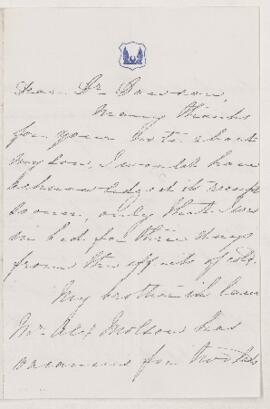 Dear Dr. Dawson,
Many thanks
for your note about
my son, I would have
acknowledged it
sooner, only that I was
in bed for three days
from the effects of
My brother in law
Mr. Alex Molson has
vacancies for two